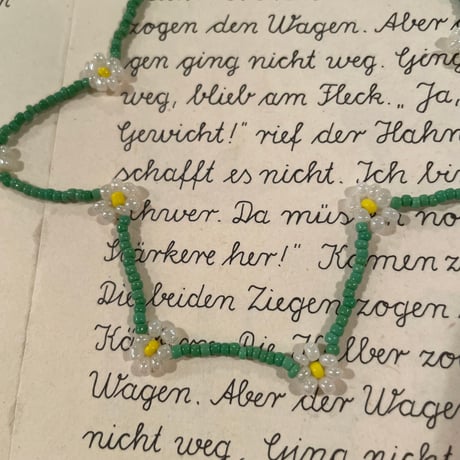 zogen den Wagen. Aber
gen ging nicht weg. Ging
weg, blieb am Fleck. „Ja,
Gewicht!" rief der Hahn
schafft es nicht. Ich bin
schwer. Da müs no
Stärkere her!" Kamen z
Die beiden Ziegen zogen
Die Kälber zo
Wagen. Aber der Wagen
nicht weg, Ging nicht